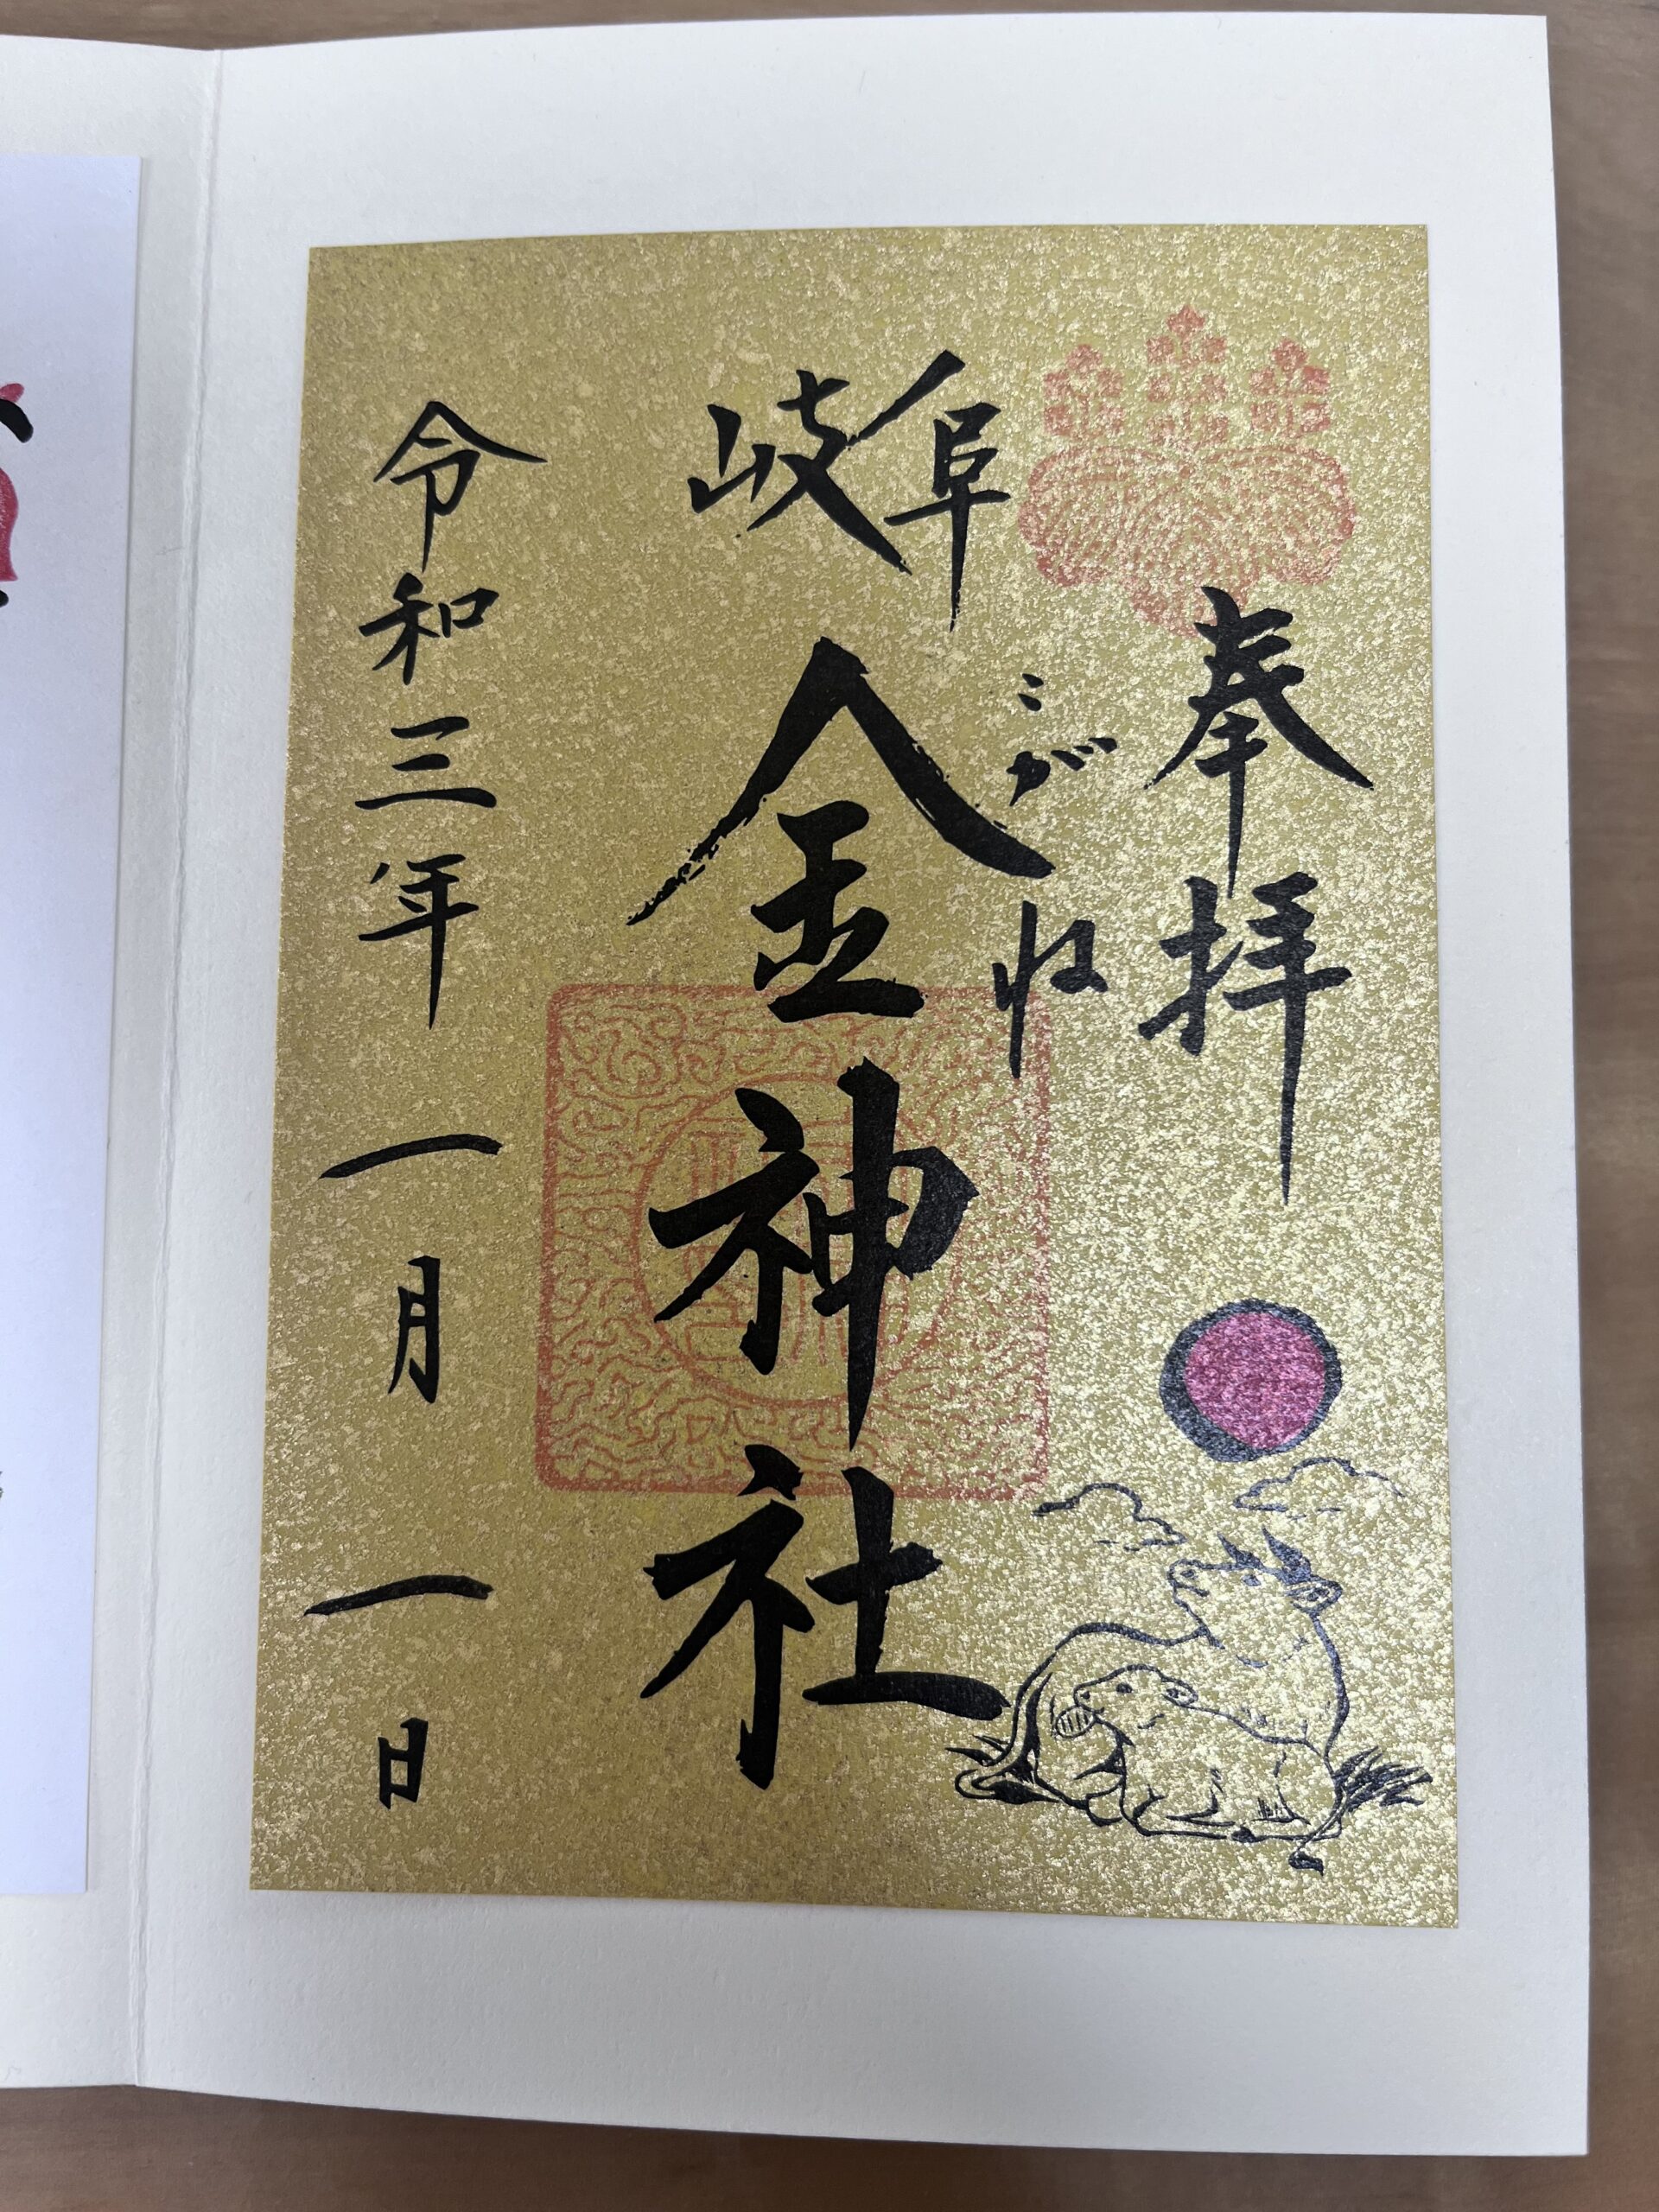 奉拝
こがね
岐阜
金神社
令和三年一月一日